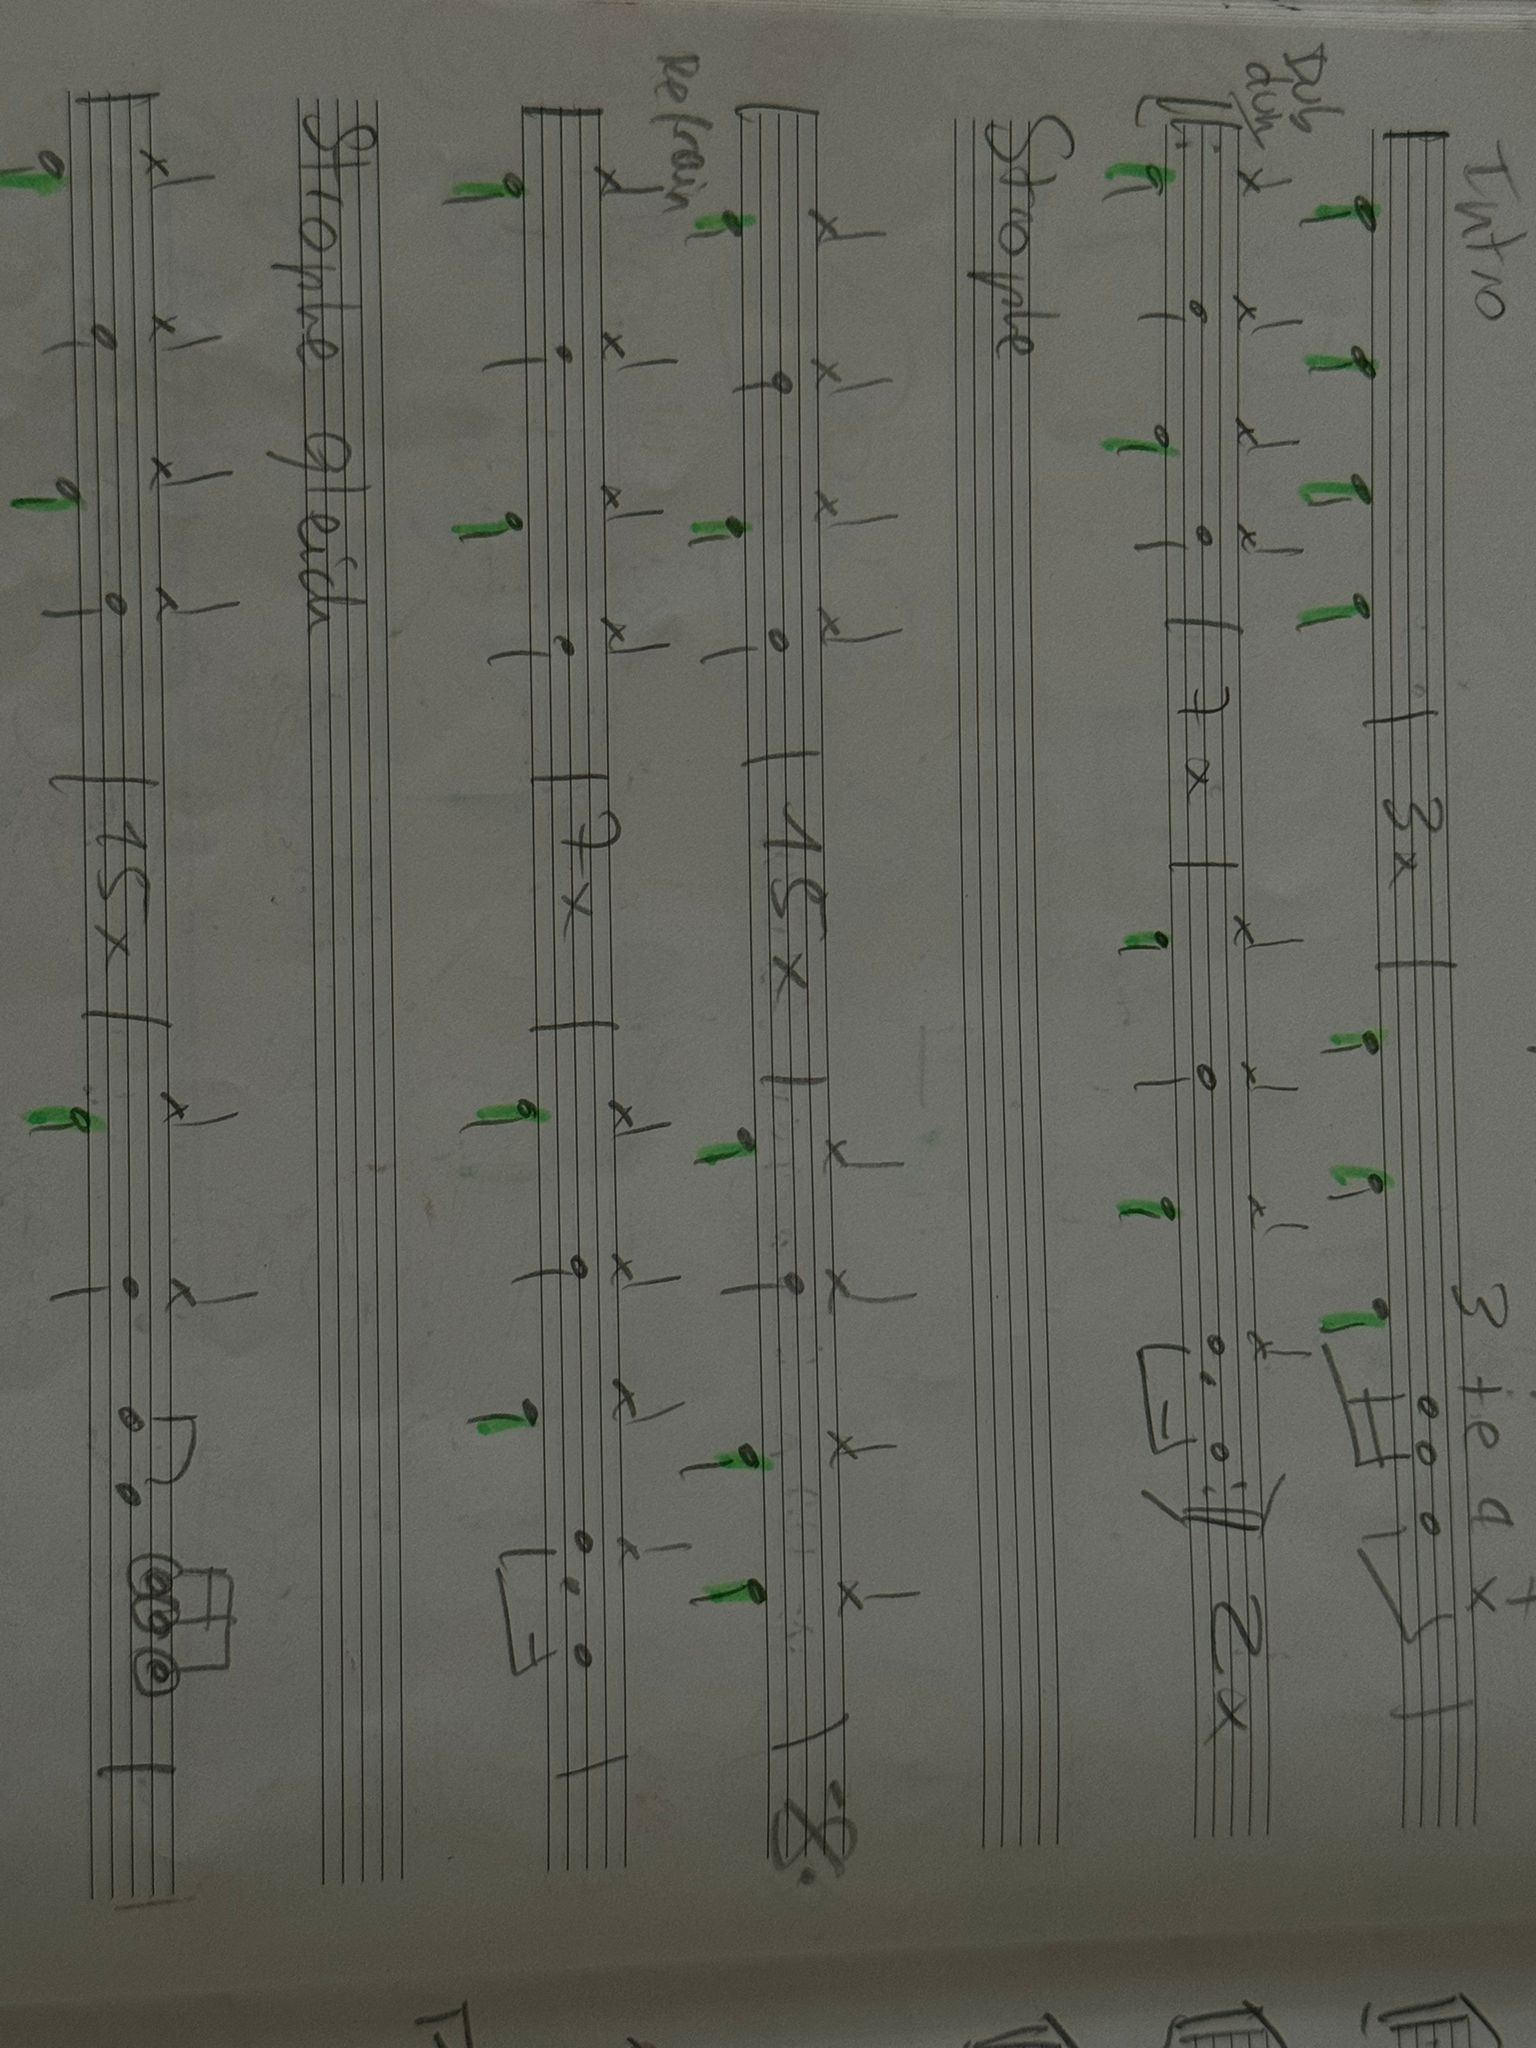 Intro
3x
3 + e a x
Dub
duh
7x
2x
Strophe
15x
8.
Refrain
7x
Strophe gleich
15x